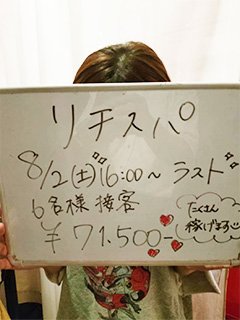 リチスパ
8/2(土)16:00〜ラスト
6名様 接客
¥71.500-
たくさん
稼げます